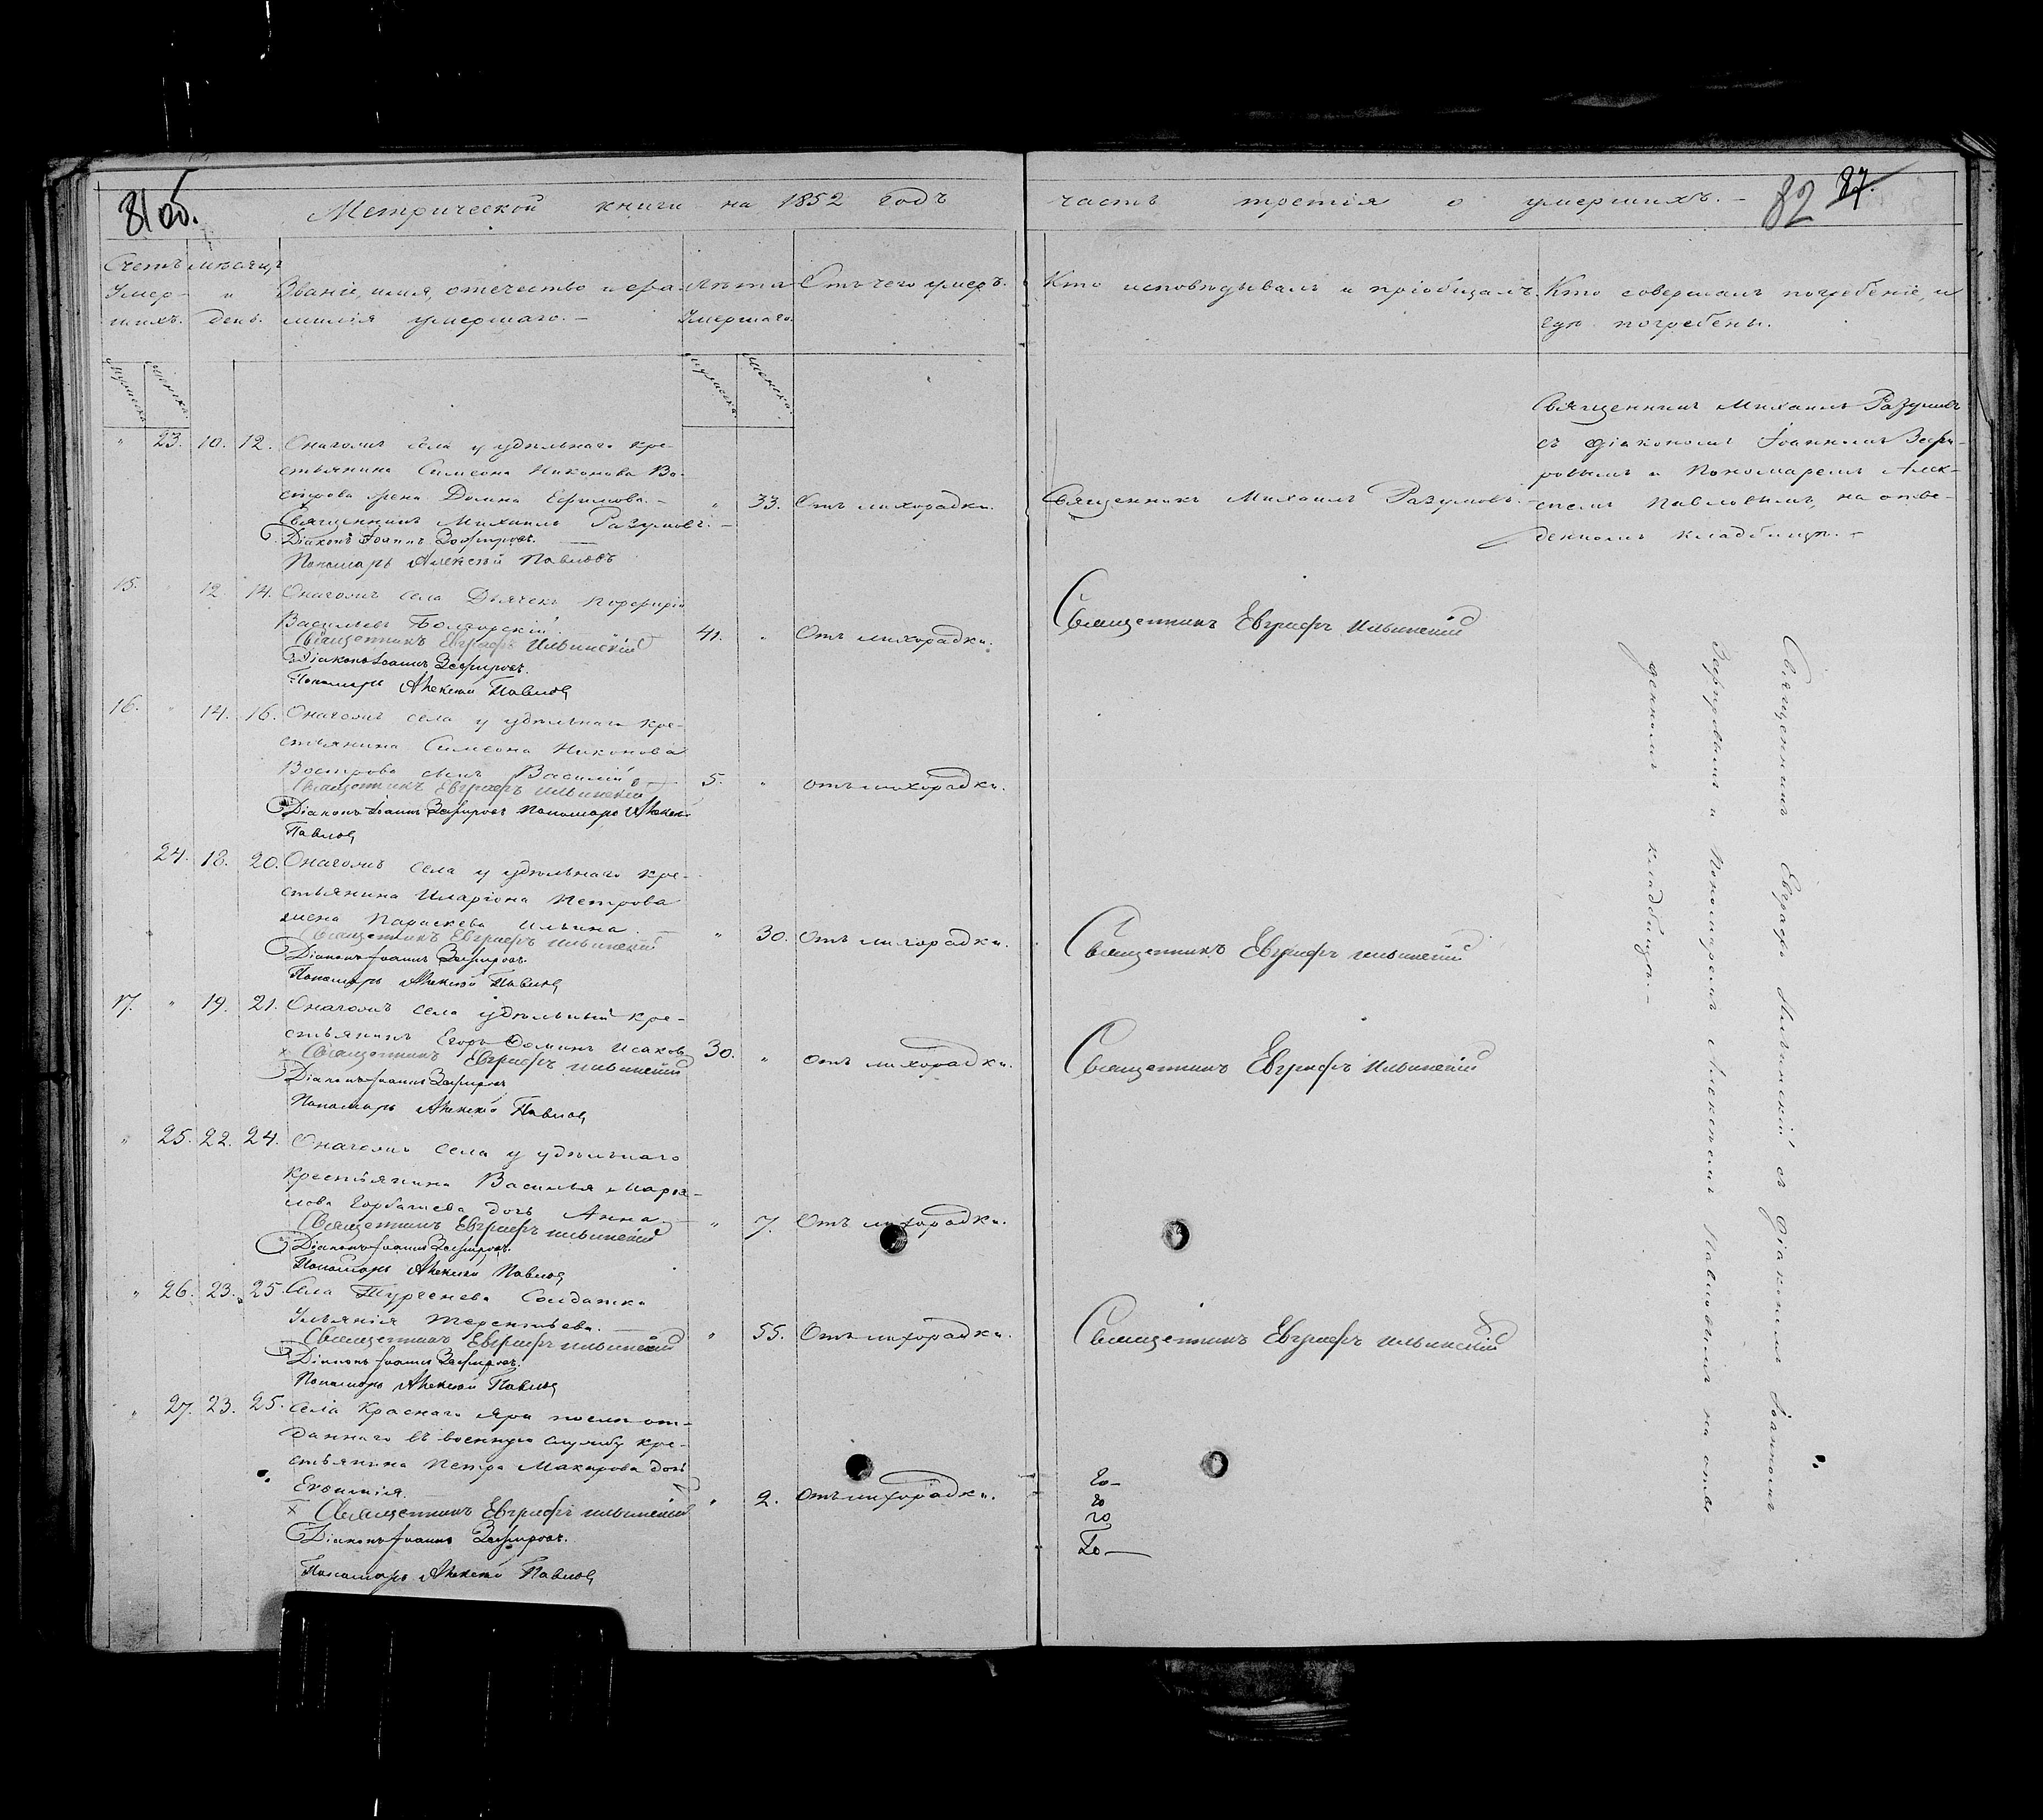 81 об.
Метрической книги на 1852 годъ
Счетъ Умер-шихъ.
Мѣсяцъ и день.
Званіе, имя, отчество и фа-
милія умершаго. –
Лѣта
Умершаго.
Отъ чего умеръ.
Мужеска. Женска.
Мужеска. Женска.
" 23. 10. 12. Означеннаго села у удѣльнаго кре-
стьянина Симеона Никонова Во-
строва жена Домна Ефимова. – " 33. Отъ лихорадки.
Священникъ Михаилъ Разумовъ. –
Діаконъ Іоаннъ Зефировъ.
Пономарь Алексѣй Павловъ
15. " 12 14. села Дьячекъ Порфирій
Васильевъ 41. " Отъ лихорадки.
Священникъ Евграфъ Ильинскій
Діаконъ Іоаннъ Зефировъ.
Пономарь Алексѣй Павловъ
16. " 14. 16. села у удѣльнаго кре-
стьянина Симеона Никонова
Вострова сынъ Василій 5. " отъ лихорадки.
Священникъ Евграфъ Ильинскій
Діаконъ Іоаннъ Зефировъ Пономарь Алексѣй
Павловъ
24. 18. 20. села у удѣльнаго кре-
стьянина Иларіона Петрова
жена Параскева Ильина. – " 30. Отъ лихорадки.
Священникъ Евграфъ Ильинскій
Діаконъ Іоаннъ Зефировъ.
Пономарь Алексѣй Павловъ
17. " 19. 21. села удѣльный кре-
стьянинъ Егоръ Исаковъ 30. " отъ лихорадки.
Священникъ Евграфъ Ильинскій
Діаконъ Іоаннъ Зефировъ
Пономарь Алексѣй Павловъ
" 25. 22. 24. села у удѣльнаго
крестьянина Василья
Горбачева дочь Анна " 7. Отъ лихорадки.
Священникъ Евграфъ Ильинскій
Діаконъ Іоаннъ Зефировъ.
Пономарь Алексѣй Павловъ
" 26. 23. 25. Села Тургенева Солдатка
Терентьева. " 55. Отъ лихорадки.
Священникъ Евграфъ Ильинскій
Діаконъ Іоаннъ Зефировъ.
Пономарь Алексѣй Павловъ
" 27. 23. 25. Села Краснаго Яра от-
даннаго въ военную службу кре-
стьянина Петра Макарова дочь
" 2. Отъ лихорадки.
Священникъ Евграфъ Ильинскій
Діаконъ Іоаннъ Зефировъ.
Пономарь Алексѣй Павловъ
часть третія о умершихъ. –
82 87.
Кто исповѣдывалъ и пріобщалъ.
Кто совершалъ погребеніе, и
гдѣ погребены.
Священникъ Михаилъ Разумовъ. –
Священникъ Михаилъ Разумовъ
съ діакономъ Іоанномъ Зефи-
ровымъ и Пономаремъ Алек-
сѣемъ Павловымъ, на отве-
денномъ кладбищѣ. –
Священникъ Евграфъ Ильинскій
Священникъ Евграфъ Ильинскій
Священникъ Евграфъ Ильинскій
Священникъ Евграфъ Ильинскій
Священникъ Евграфъ Ильинскій съ діакономъ Іоанномъ
Зефировымъ и Пономаремъ Алексѣемъ Павловымъ на отве-
денномъ кладбищѣ. –